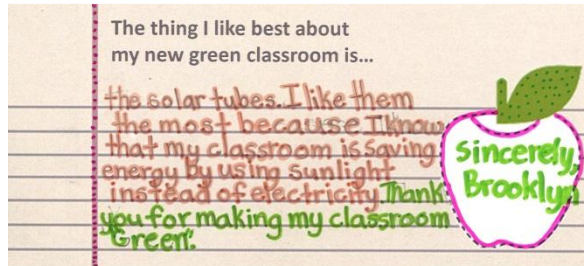 The thing I like best about
my new green classroom is...
the solar tubes. I like them
the most because I know
that my classroom is saving
energy by using sunlight
instead of electricity. Thank
you for making my classroom
Green.
Sincerely,
Brooklyn